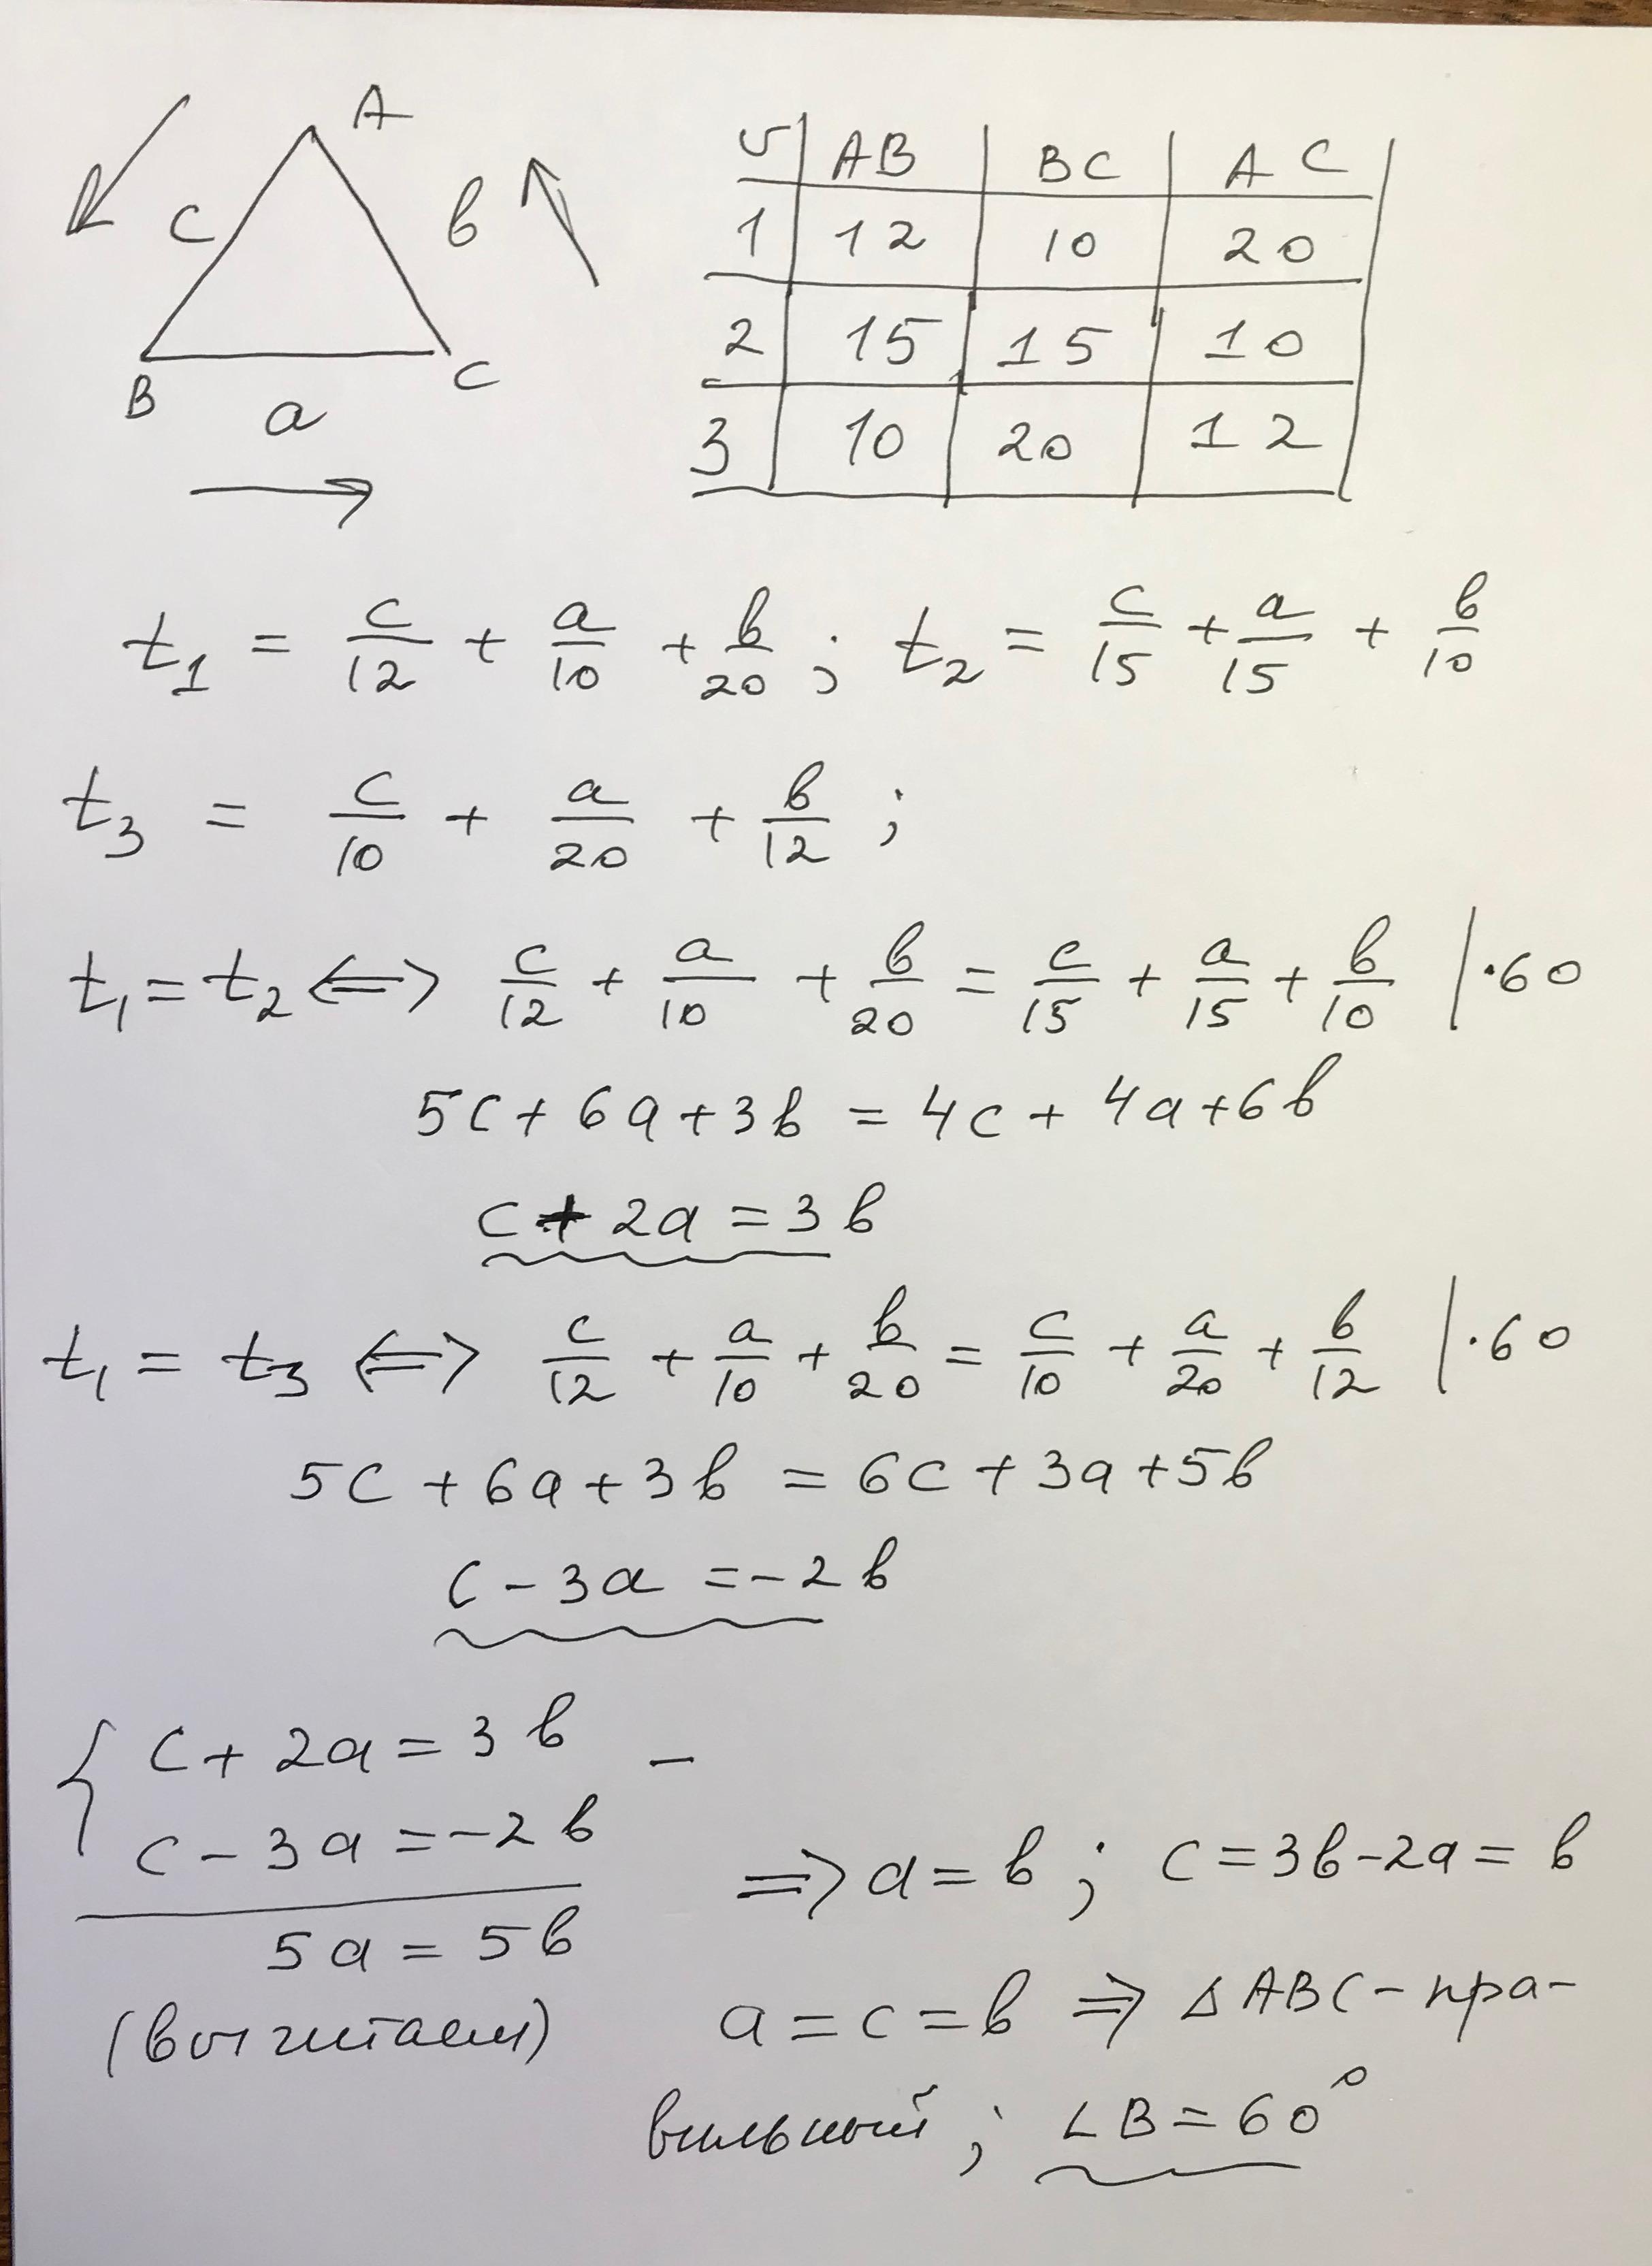 A
c в
B C
a
v AB BC AC
1 12 10 20
2 15 15 10
3 10 20 12
t₁ = c/12 + a/10 + в/20 ; t₂ = c/15 + a/15 + в/10
t₃ = c/10 + a/20 + в/12 ;
t₁ = t₂ ⟺ c/12 + a/10 + в/20 = c/15 + a/15 + в/10 | ·60
5c + 6a + 3в = 4c + 4a + 6в
c + 2a = 3в
t₁ = t₃ ⟺ c/12 + a/10 + в/20 = c/10 + a/20 + в/12 | ·60
5c + 6a + 3в = 6c + 3a + 5в
c - 3a = -2в
{ c + 2a = 3в -
c - 3a = -2в
5a = 5в
(вычитаем)
⟹ a = в ; c = 3в - 2a = в
a = c = в ⟹ △ABC - пра-
вильный ; ∠B = 60°